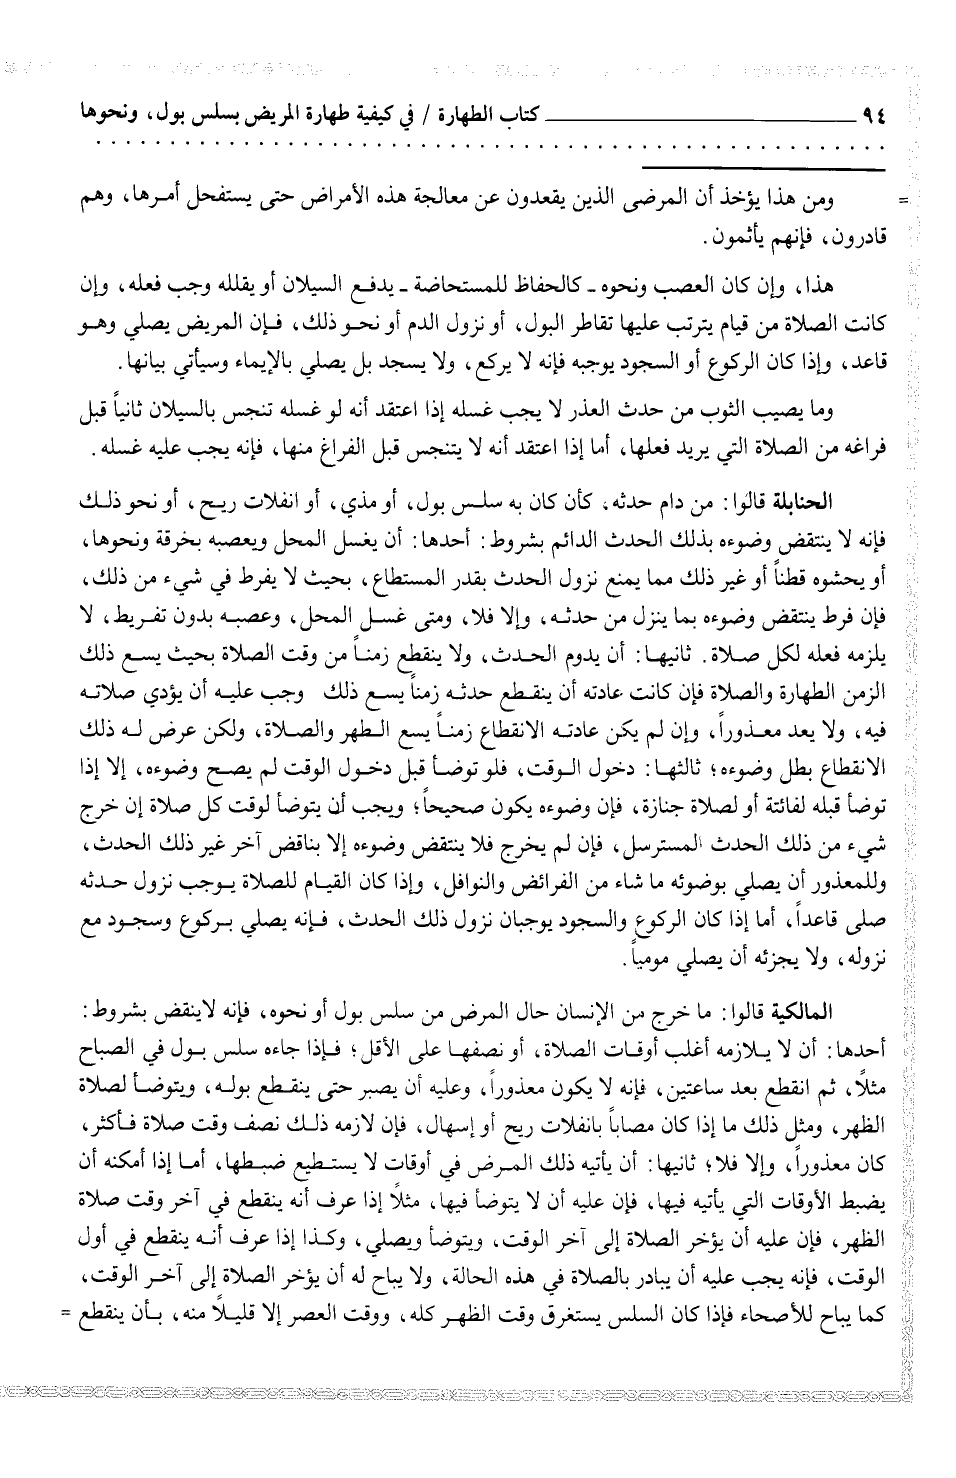 ٩٤ ــــــــــ كتاب الطهارة / في كيفية طهارة المريض بسلس بول، ونحوها
= ومن هذا يؤخذ أن المرضى الذين يقعدون عن معالجة هذه الأمراض حتى يستفحل أمرها، وهم
قادرون، فإنهم يأثمون.
هذا، وإن كان العصب ونحوه ـ كالحفاظ للمستحاضة ـ يدفع السيلان أو يقلله وجب فعله، وإن
كانت الصلاة من قيام يترتب عليها تقاطر البول، أو نزول الدم أو نحو ذلك، فإن المريض يصلي وهو
قاعد، وإذا كان الركوع أو السجود يوجبه فإنه لا يركع، ولا يسجد بل يصلي بالإيماء وسيأتي بيانها.
وما يصيب الثوب من حدث العذر لا يجب غسله إذا اعتقد أنه لو غسله تنجس بالسيلان ثانياً قبل
فراغه من الصلاة التي يريد فعلها، أما إذا اعتقد أنه لا يتنجس قبل الفراغ منها، فإنه يجب عليه غسله.
الحنابلة قالوا: من دام حدثه، كأن كان به سلس بول، أو مذي، أو انفلات ريح، أو نحو ذلك
فإنه لا ينتقض وضوءه بذلك الحدث الدائم بشروط: أحدها: أن يغسل المحل ويعصبه بخرقة ونحوها،
أو يحشوه قطناً أو غير ذلك مما يمنع نزول الحدث بقدر المستطاع، بحيث لا يفرط في شيء من ذلك،
فإن فرط ينتقض وضوءه بما ينزل من حدثه، وإلا فلا، ومتى غسل المحل، وعصبه بدون تفريط، لا
يلزمه فعله لكل صلاة. ثانيها: أن يدوم الحدث، ولا ينقطع زمناً من وقت الصلاة بحيث يسع ذلك
الزمن الطهارة والصلاة فإن كانت عادته أن ينقطع حدثه زمناً يسع ذلك وجب عليه أن يؤدي صلاته
فيه، ولا يعد معذوراً، وإن لم يكن عادته الانقطاع زمناً يسع الطهر والصلاة، ولكن عرض له ذلك
الانقطاع بطل وضوءه؛ ثالثها: دخول الوقت، فلو توضأ قبل دخول الوقت لم يصح وضوءه، إلا إذا
توضأ قبله لفائتة أو لصلاة جنازة، فإن وضوءه يكون صحيحاً؛ ويجب أن يتوضأ لوقت كل صلاة إن خرج
شيء من ذلك الحدث المسترسل، فإن لم يخرج فلا ينتقض وضوءه إلا بناقض آخر غير ذلك الحدث،
وللمعذور أن يصلي بوضوئه ما شاء من الفرائض والنوافل، وإذا كان القيام للصلاة يوجب نزول حدثه
صلى قاعداً، أما إذا كان الركوع والسجود يوجبان نزول ذلك الحدث، فإنه يصلي بركوع وسجود مع
نزوله، ولا يجزئه أن يصلي مومياً.
المالكية قالوا: ما خرج من الإنسان حال المرض من سلس بول أو نحوه، فإنه لاينقض بشروط:
أحدها: أن لا يلازمه أغلب أوقات الصلاة، أو نصفها على الأقل؛ فإذا جاءه سلس بول في الصباح
مثلاً، ثم انقطع بعد ساعتين، فإنه لا يكون معذوراً، وعليه أن يصبر حتى ينقطع بوله، ويتوضأ لصلاة
الظهر، ومثل ذلك ما إذا كان مصاباً بانفلات ريح أو إسهال، فإن لازمه ذلك نصف وقت صلاة فأكثر،
كان معذوراً، وإلا فلا؛ ثانيها: أن يأتيه ذلك المرض في أوقات لا يستطيع ضبطها، أما إذا أمكنه أن
يضبط الأوقات التي يأتيه فيها، فإن عليه أن لا يتوضأ فيها، مثلاً إذا عرف أنه ينقطع في آخر وقت صلاة
الظهر، فإن عليه أن يؤخر الصلاة إلى آخر الوقت، ويتوضأ ويصلي، وكذا إذا عرف أنه ينقطع في أول
الوقت، فإنه يجب عليه أن يبادر بالصلاة في هذه الحالة، ولا يباح له أن يؤخر الصلاة إلى آخر الوقت،
كما يباح للأصحاء فإذا كان السلس يستغرق وقت الظهر كله، ووقت العصر إلا قليلاً منه، بأن ينقطع =